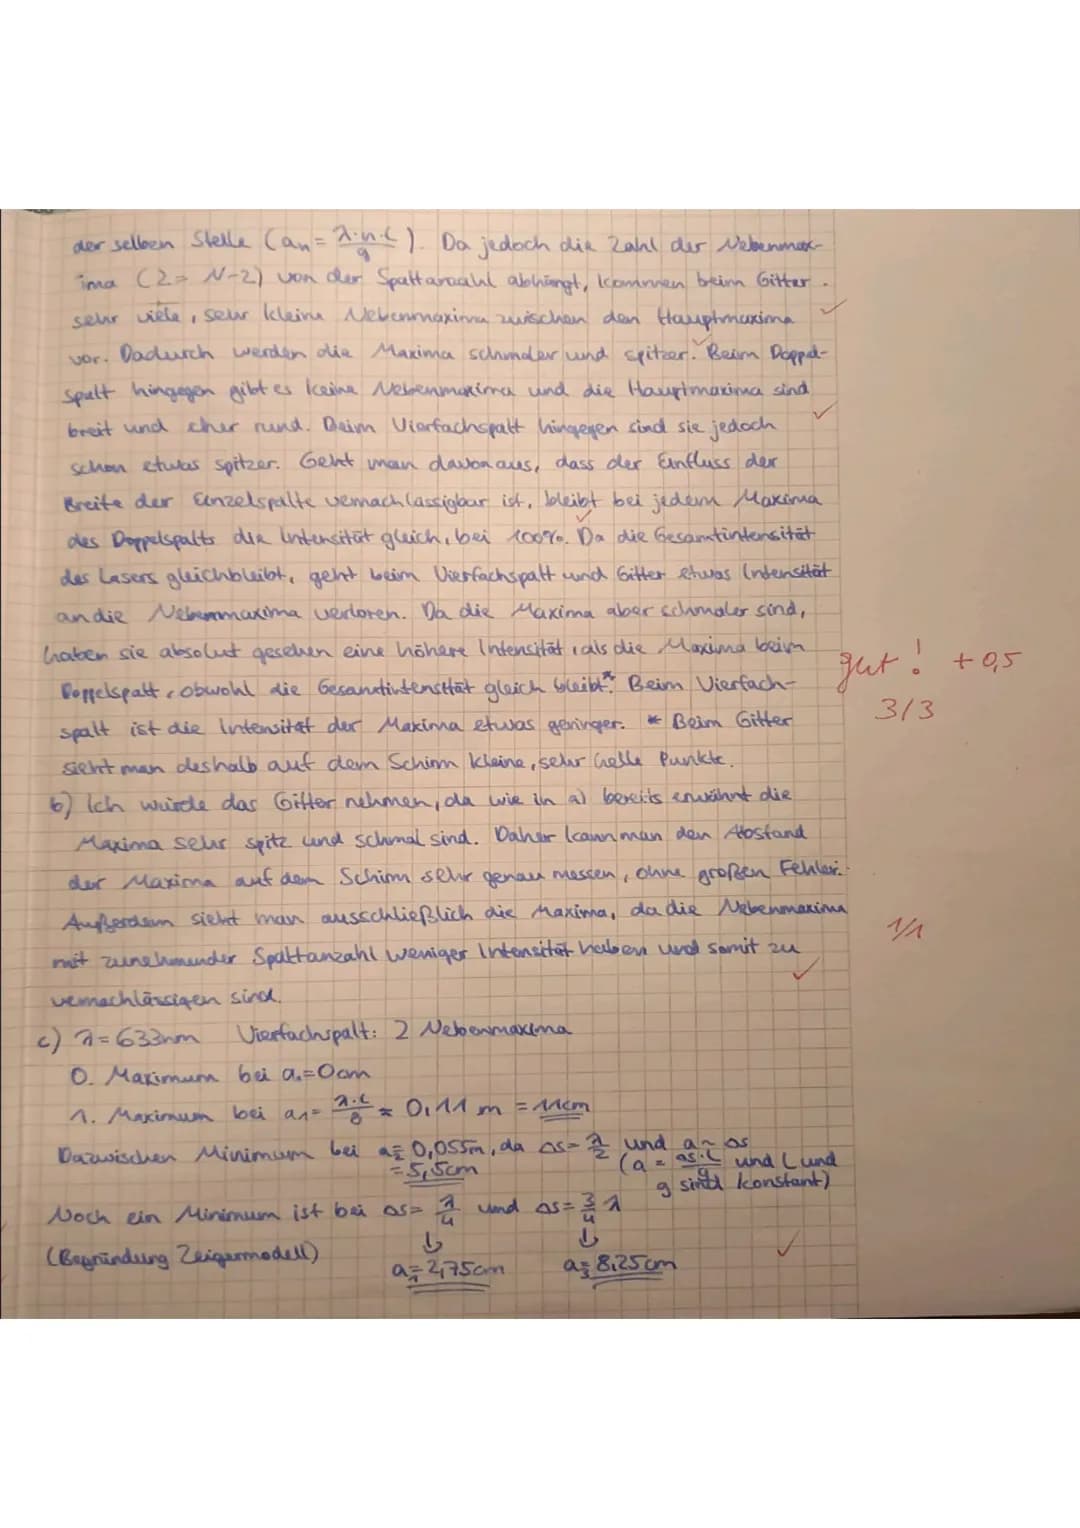 der selben Stelle (aₙ = λ·n·l / g). Da jedoch die Zahl der Nebenmax-
ima (Z = N-2) von der Spaltanzahl abhängt, kommen beim Gitter
sehr viele, sehr kleine Nebenmaxima zwischen den Hauptmaxima
vor. Dadurch werden die Maxima schmaler und spitzer. Beim Doppel-
spalt hingegen gibt es keine Nebenmaxima und die Hauptmaxima sind
breit und eher rund. Beim Vierfachspalt hingegen sind sie jedoch
schon etwas spitzer. Geht man davon aus, dass der Einfluss der
Breite der Einzelspalte vernachlässigbar ist, bleibt bei jedem Maxima
des Doppelspalts die Intensität gleich, bei 100%. Da die Gesamtintensität
des Lasers gleichbleibt, geht beim Vierfachspalt und Gitter etwas Intensität
an die Nebenmaxima verloren. Da die Maxima aber schmaler sind,
haben sie absolut gesehen eine höhere Intensität, als die Maxima beim
gut! +0,5
Doppelspalt, obwohl die Gesamtintensität gleich bleibt.* Beim Vierfach-
3/3
spalt ist die Intensität der Maxima etwas geringer. * Beim Gitter
sieht man deshalb auf dem Schirm kleine, sehr helle Punkte.
b) Ich würde das Gitter nehmen, da wie in a) bereits erwähnt die
Maxima sehr spitz und schmal sind. Daher kann man den Abstand
der Maxima auf dem Schirm sehr genau messen, ohne großen Fehler.
Außerdem sieht man ausschließlich die Maxima, da die Nebenmaxima
1/1
mit zunehmender Spaltanzahl weniger Intensität haben und somit zu
vernachlässigen sind.
c) λ = 633nm Vierfachspalt: 2 Nebenmaxima
0. Maximum bei a₀ = 0cm
1. Maximum bei a₁ = λ·l / g ≈ 0,11 m = 11cm
Dazwischen Minimum bei a₂ = 0,055m, da Δs = λ/2 und a ~ Δs
= 5,5cm (a = Δs·l / g und l und
g sind konstant)
Noch ein Minimum ist bei Δs = λ/4 und Δs = 3/4 λ
(Begründung Zeigermodell) ↓ ↓
a₁ = 2,75cm a₃ = 8,25cm